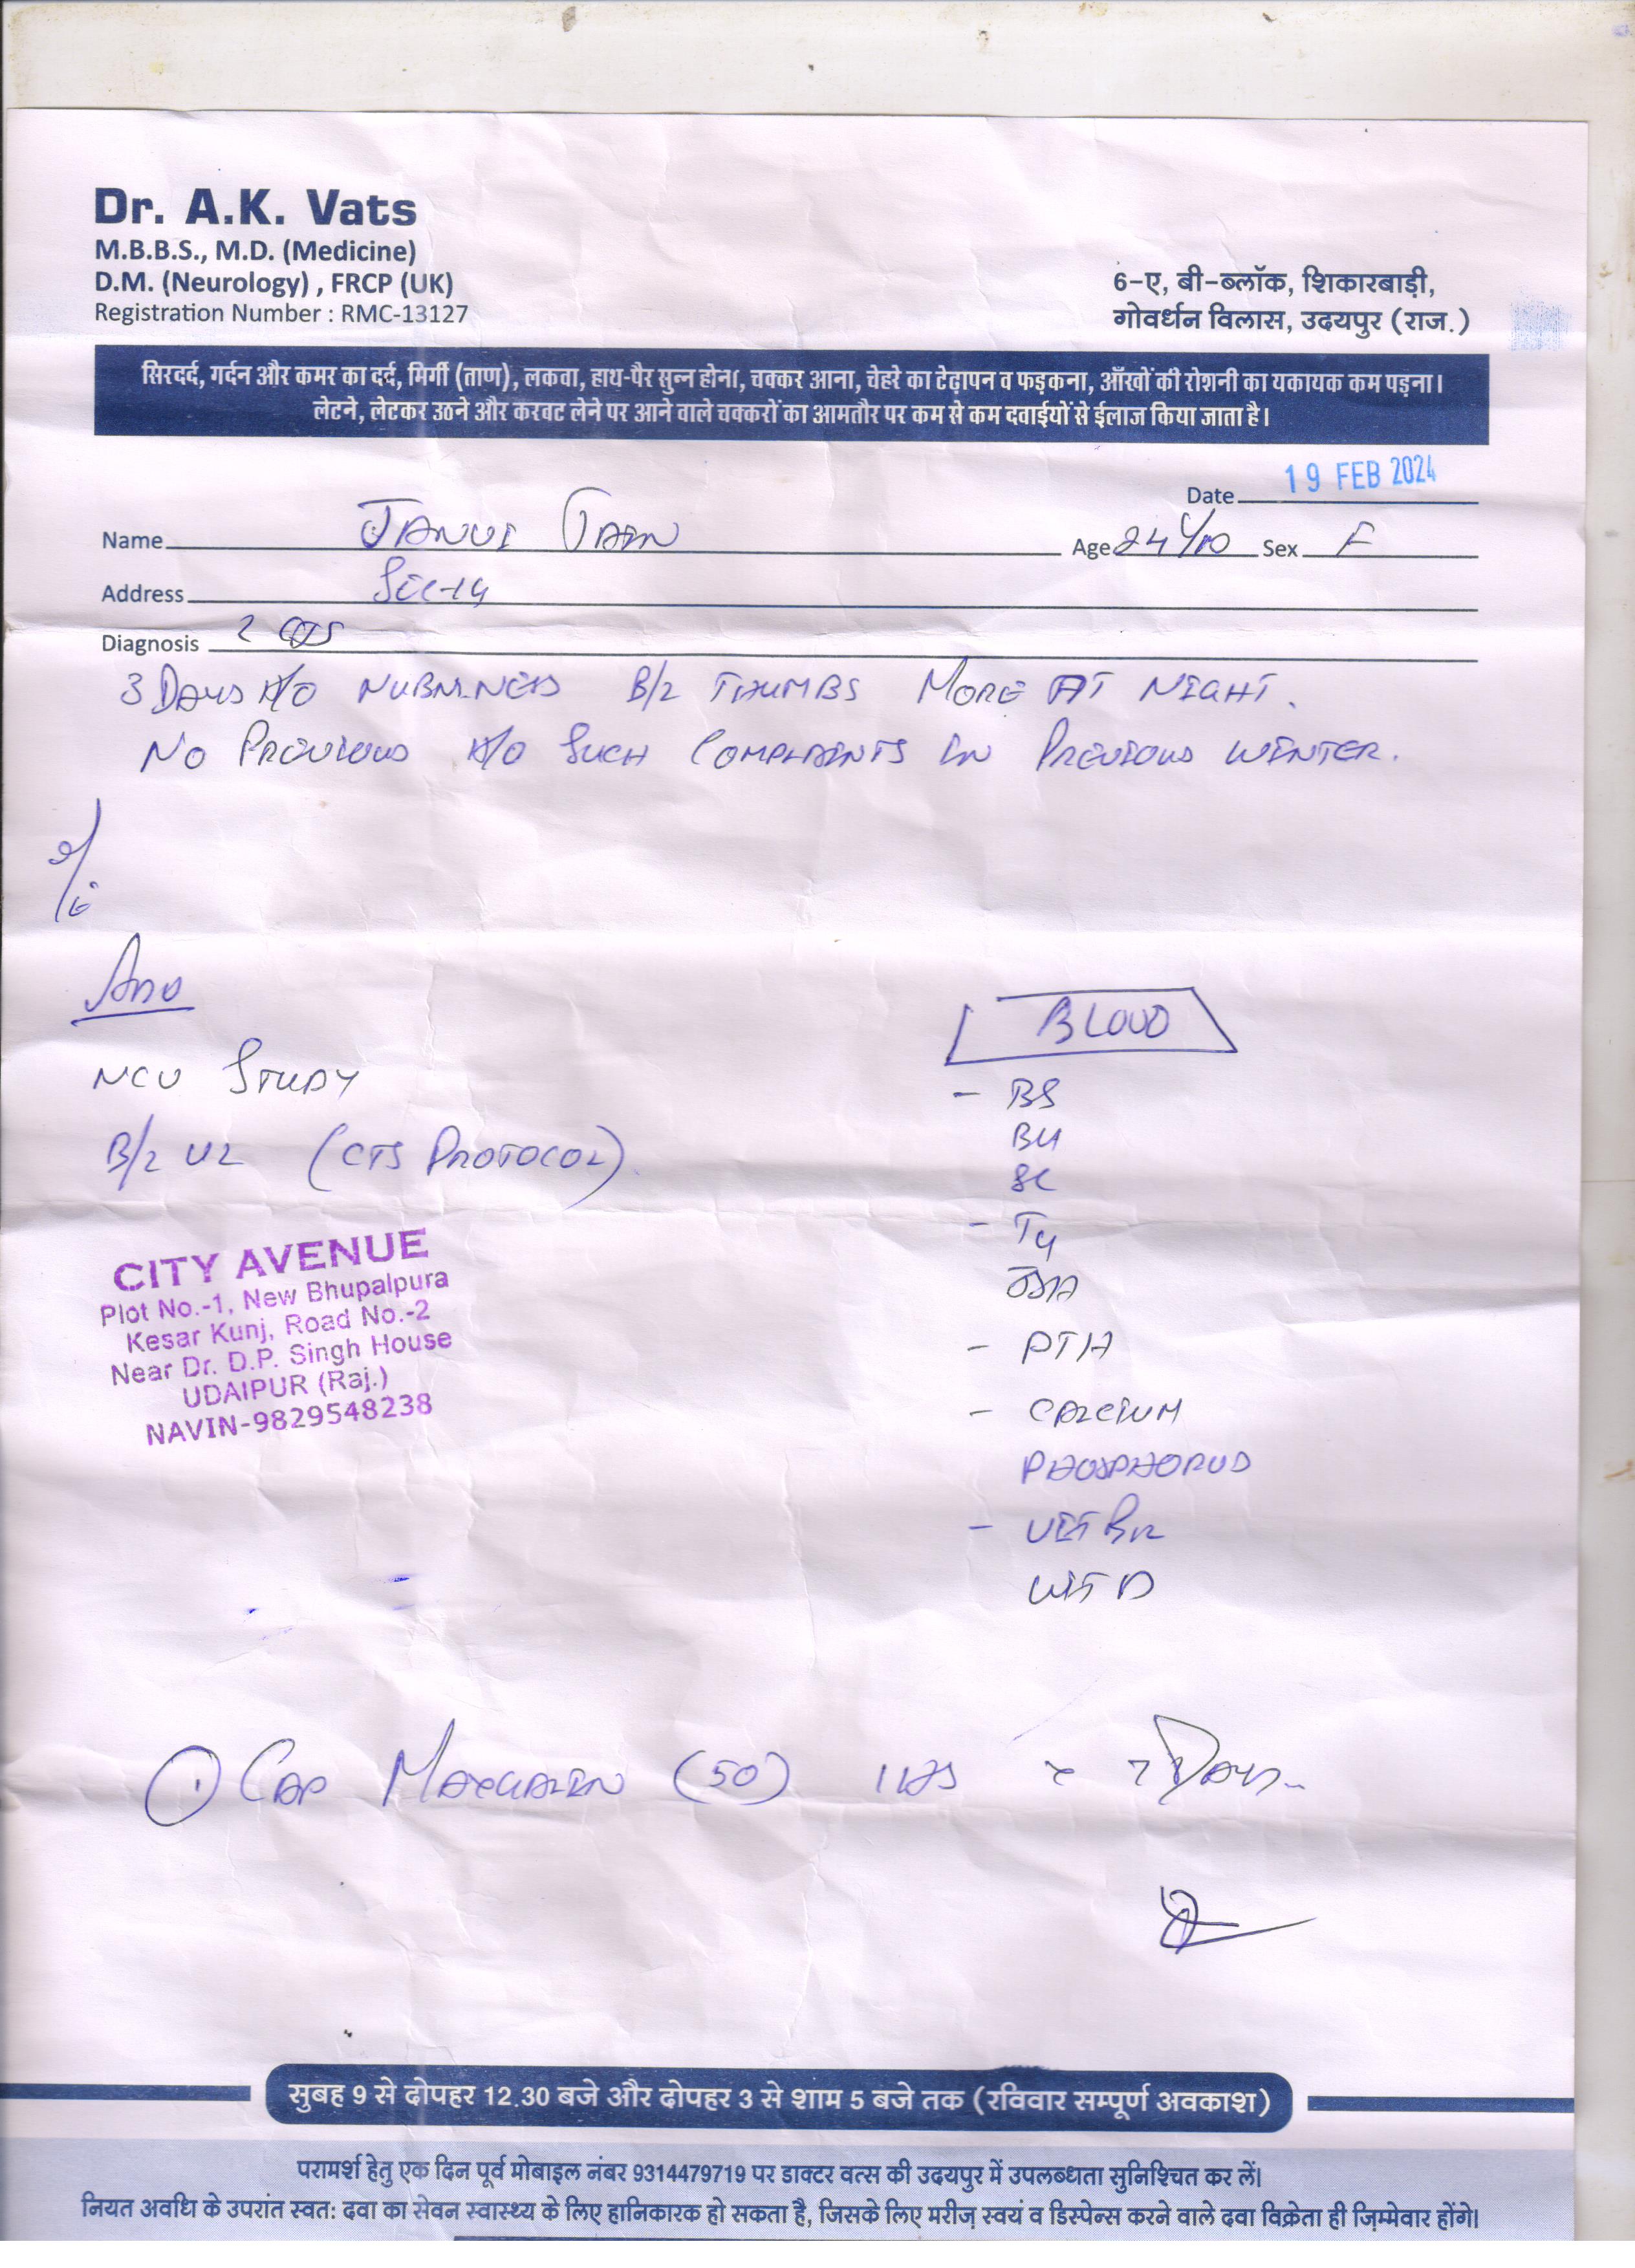 Dr. A.K. Vats
M.B.B.S., M.D. (Medicine)
D.M. (Neurology) , FRCP (UK)
Registration Number : RMC-13127
6-ए, बी-ब्लॉक, शिकारबाड़ी,
गोवर्धन विलास, उदयपुर (राज.)
सिरदर्द, गर्दन और कमर का दर्द, मिर्गी (ताण), लकवा, हाथ-पैर सुन्न होना, चक्कर आना, चेहरे का टेढ़ापन व फड़कना, आँखों की रोशनी का यकायक कम पड़ना।
लेटने, लेटकर उठने और करवट लेने पर आने वाले चक्करों का आमतौर पर कम से कम दवाईयों से ईलाज किया जाता है।
Date 19 FEB 2024
Name JANVI JAIN Age 24 Y/O Sex F
Address SEC-14
Diagnosis ? CTS
3 DAYS H/O NUBMNESS B/L THUMBS MORE AT NIGHT.
NO PREVIOUS H/O SUCH COMPLAINTS IN PREVIOUS WINTER.
ADV
BLOOD
NCV STUDY
B/L UL (CTS PROTOCOL)
- BS
BU
SC
- T4
TSH
- PTH
- CALCIUM
PHOSPHORUS
- VIT B12
VIT D
CITY AVENUE
Plot No.-1, New Bhupalpura
Kesar Kunj, Road No.-2
Near Dr. D.P. Singh House
UDAIPUR (Raj.)
NAVIN-9829548238
① CAP MAXGALIN (50) 1 HS x 7 DAYS
सुबह 9 से दोपहर 12.30 बजे और दोपहर 3 से शाम 5 बजे तक (रविवार सम्पूर्ण अवकाश)
परामर्श हेतु एक दिन पूर्व मोबाइल नंबर 9314479719 पर डाक्टर वत्स की उदयपुर में उपलब्धता सुनिश्चित कर लें।
नियत अवधि के उपरांत स्वत: दवा का सेवन स्वास्थ्य के लिए हानिकारक हो सकता है, जिसके लिए मरीज़ स्वयं व डिस्पेन्स करने वाले दवा विक्रेता ही ज़िम्मेवार होंगे।